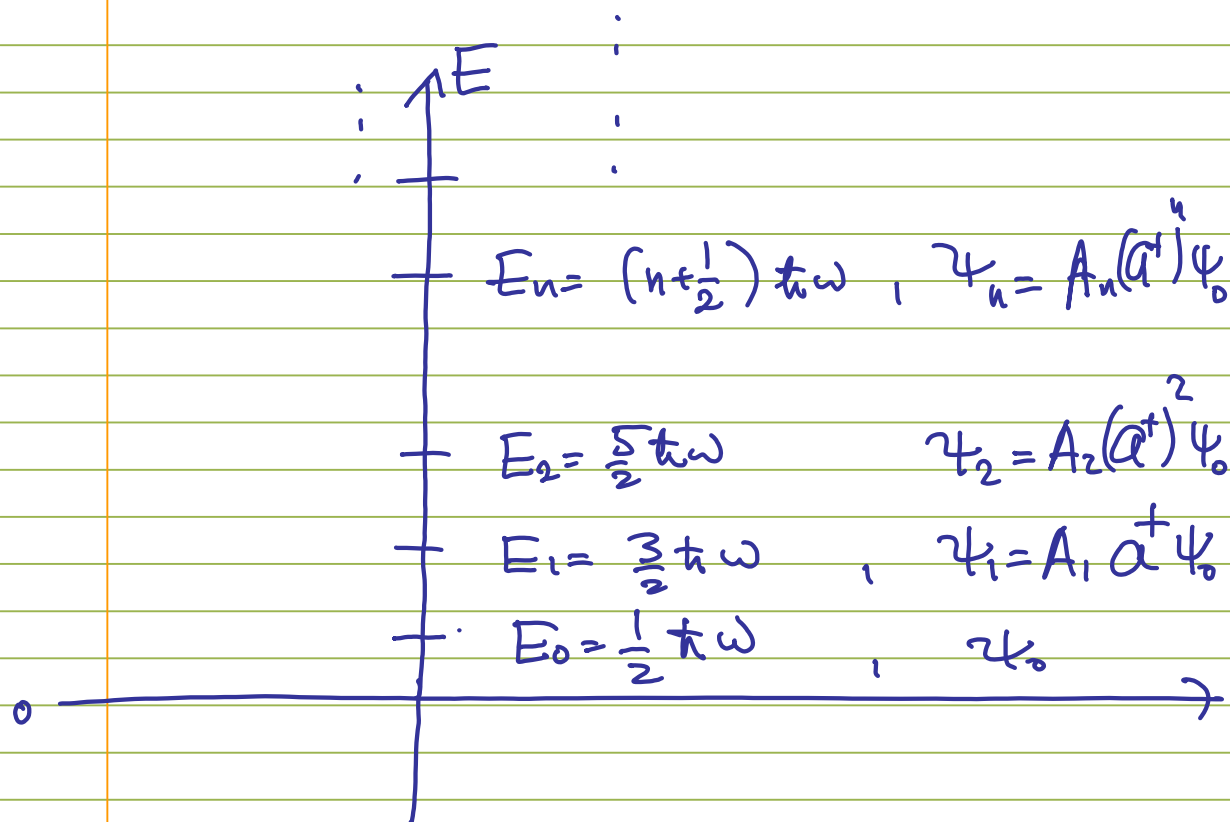 E
Eₙ = (n+1/2) ħω , Ψₙ = Aₙ(a†)ⁿΨ₀
E₂ = 5/2 ħω Ψ₂ = A₂(a†)²Ψ₀
E₁ = 3/2 ħω , Ψ₁ = A₁ a†Ψ₀
E₀ = 1/2 ħω , Ψ₀
0